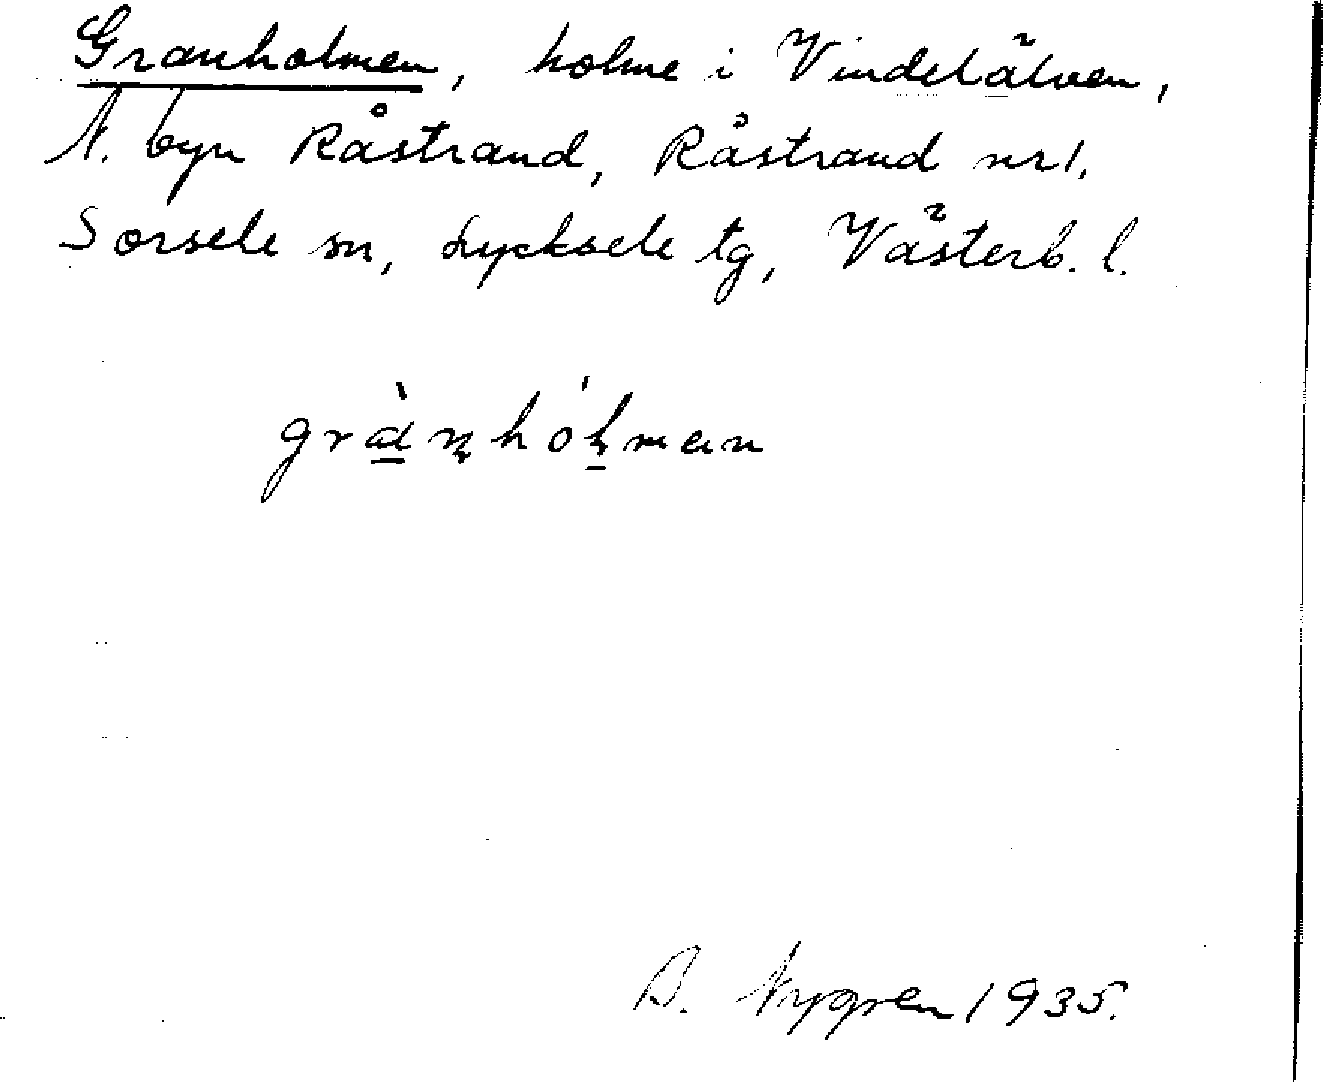 Granholmen, holme i Vindelälven,
N. byn Råstrand, Råstrand nr 1.
Sorsele sn, Lycksele tg, Västerb. l.
grànhólmen
B. Nygren 1935.